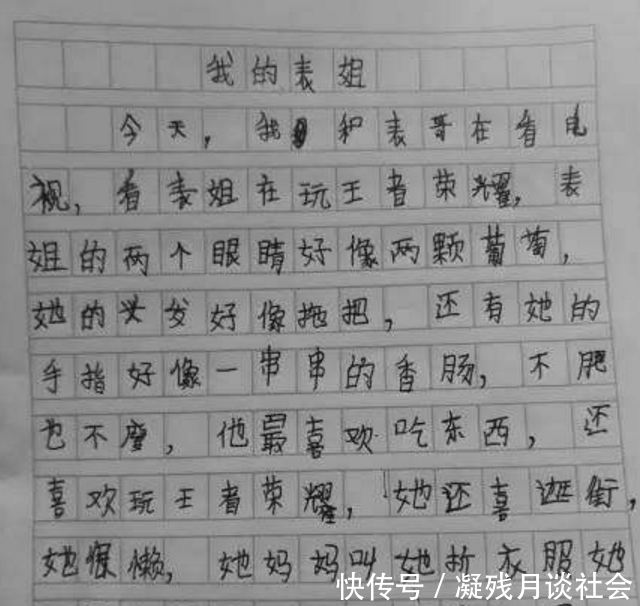 我的表姐
今天，我和表哥在看电
视，看表姐在玩王者荣耀，表
姐的两个眼睛好像两颗葡萄，
她的头发好像拖把，还有她的
手指好像一串串的香肠，不肥
也不瘦，他最喜欢吃东西，还
喜欢玩王者荣耀，她还喜逛街，
她很懒，她妈妈叫她折衣服她
快传号／凝残月谈社会